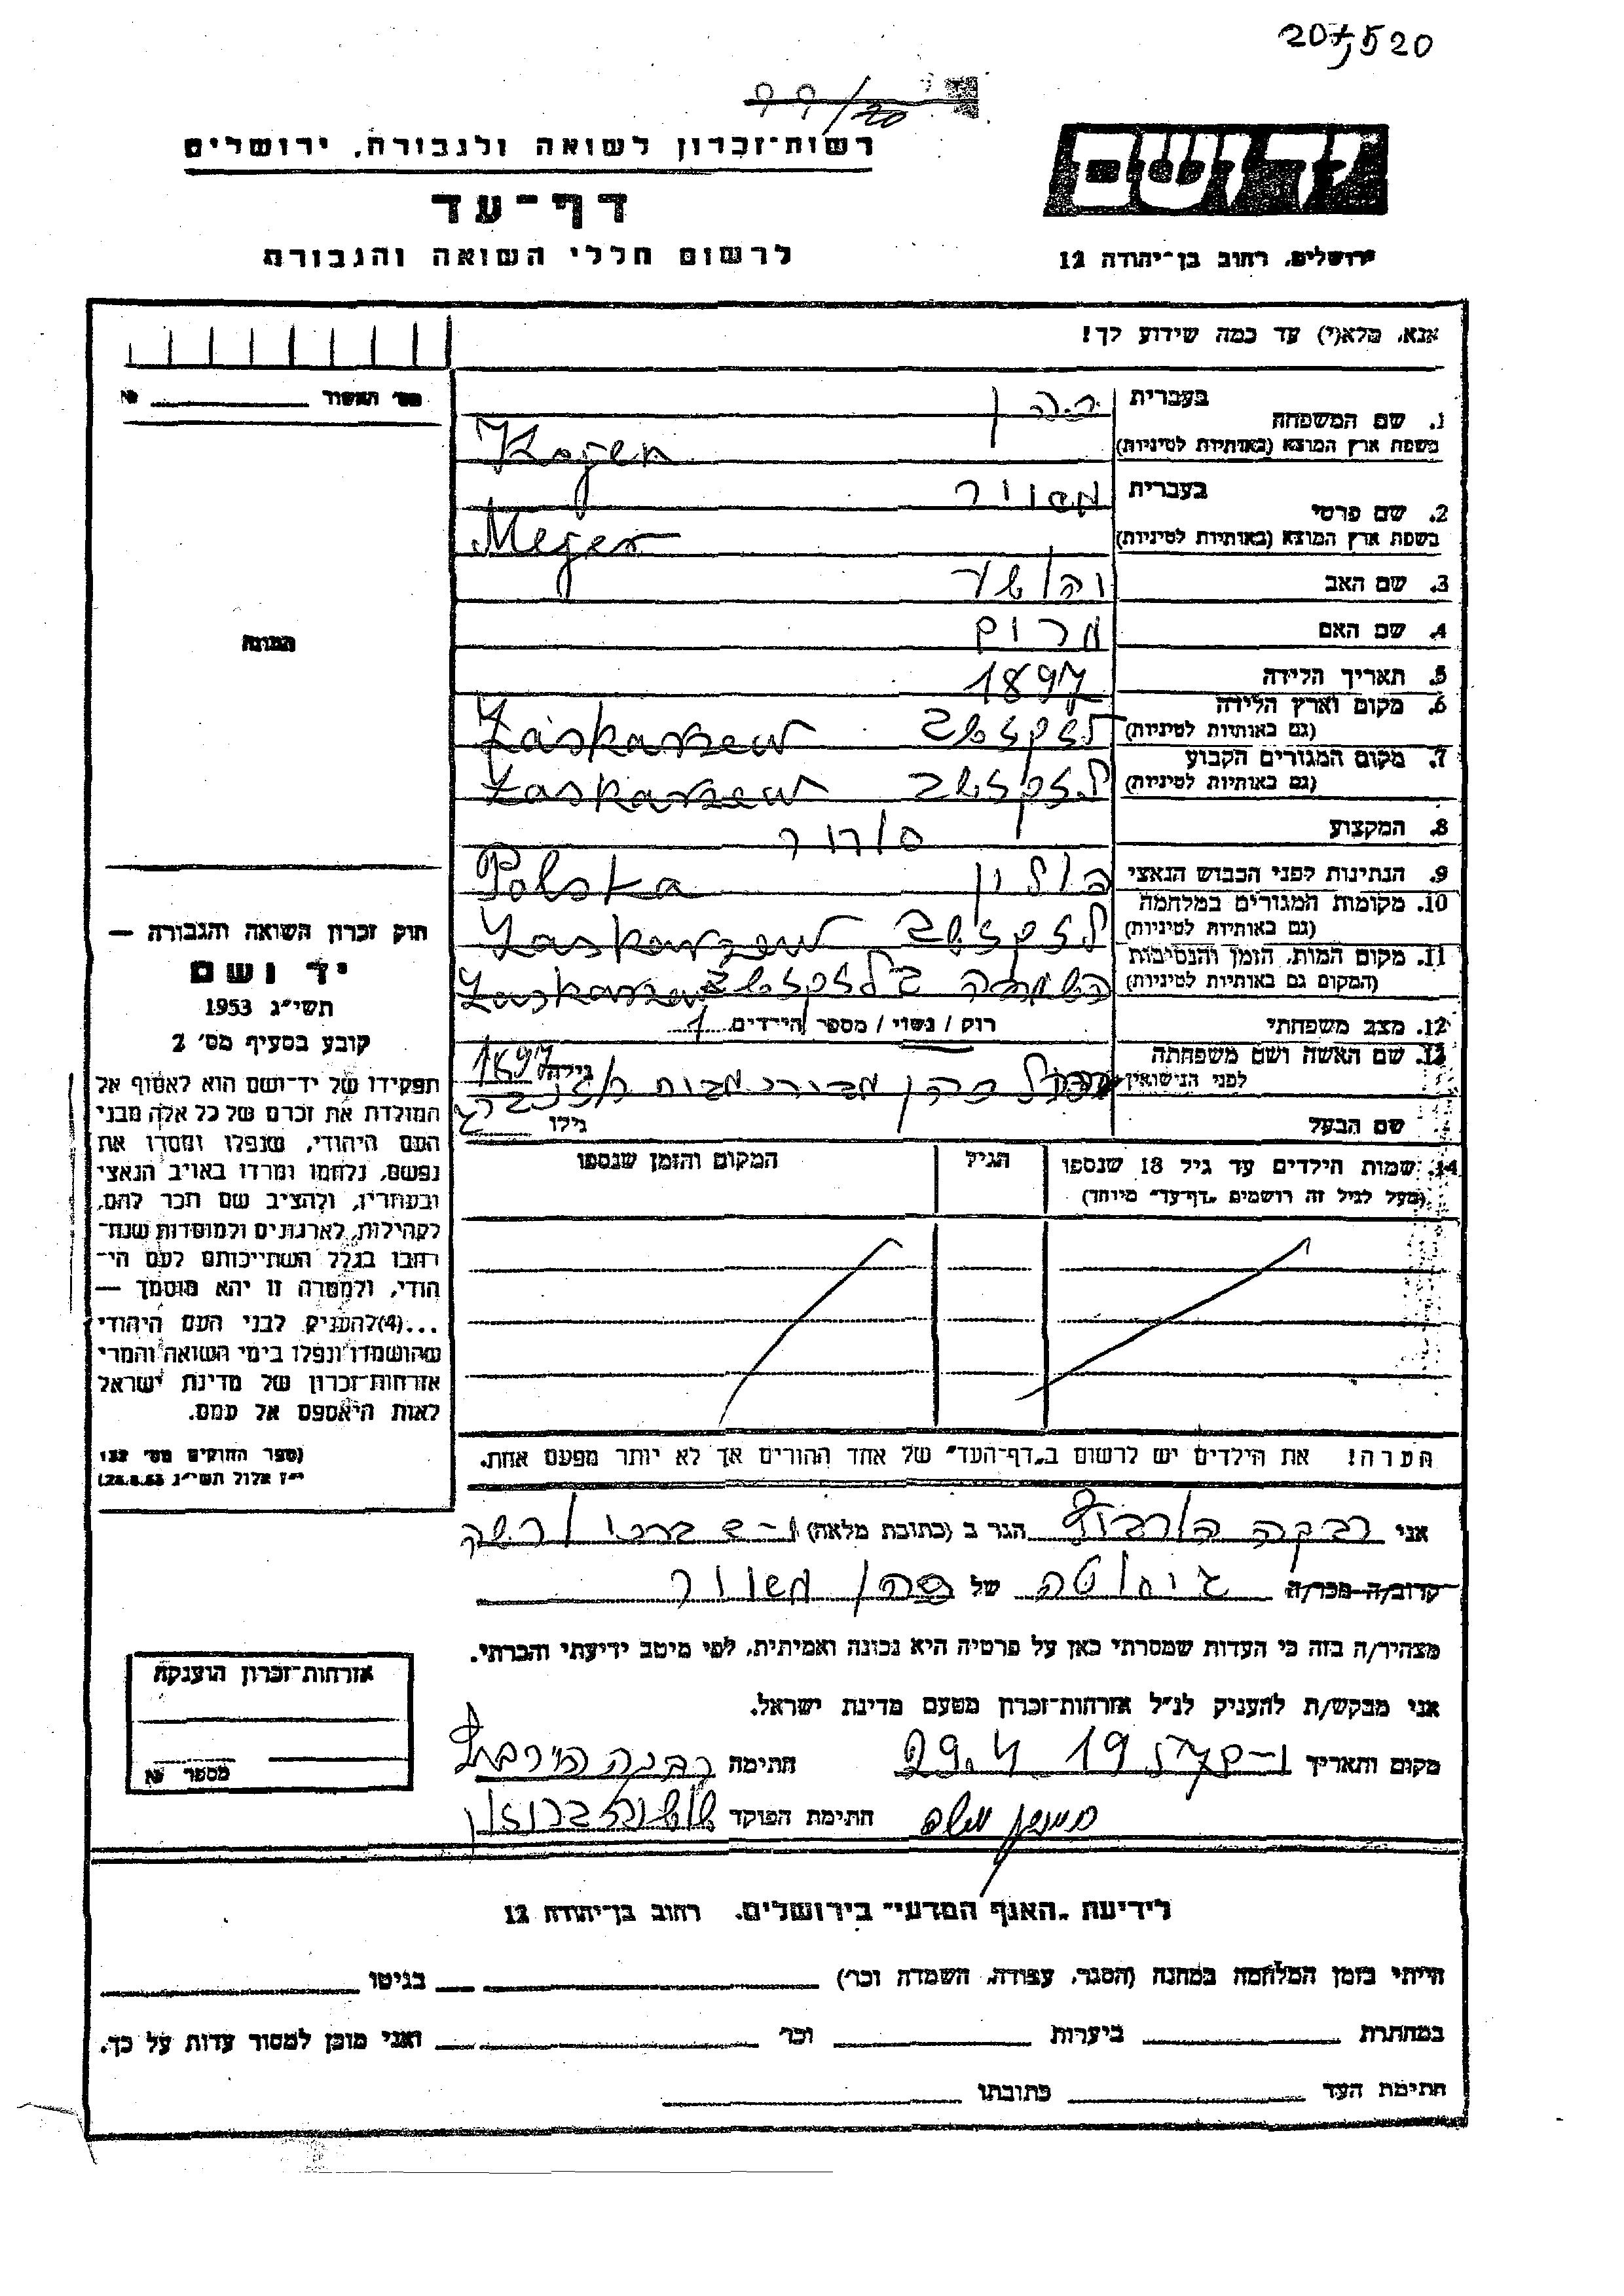 207,520
99/20
רשות־זכרון לשואה ולגבורה, ירושלים
דף־עד
לרשום חללי השואה והגבורה
יד ושם
ירושלים, רחוב בן־יהודה 12
אנא, מלא(י) עד כמה שידוע לך!
מס׳ האשור №
1. שם המשפחה בעברית כהן
משפת ארץ המוצא (באותיות לטיניות) Kagen
2. שם פרטי בעברית מאיר
בשפת ארץ המוצא (באותיות לטיניות) Mejer
3. שם האב
4. שם האם מרים
5. תאריך הלידה 1897
6. מקום וארץ הלידה (גם באותיות לטיניות) לסקז׳שב Łaskarzew
7. מקום המגורים הקבוע (גם באותיות לטיניות) Łaskarzew
8. המקצוע סוחר
9. הנתינות לפני הכבוש הנאצי פולין Polska
10. מקומות המגורים במלחמה (גם באותיות לטיניות) Łaskarzew
11. מקום המות, הזמן והנסיבות (המקום גם באותיות לטיניות) Łaskarzew
12. מצב משפחתי רוק / נשוי / מספר הילדים 1
13. שם האשה ושם משפחתה לפני הנישואין כהן גילה 1897
שם הבעל גילו
14. שמות הילדים עד גיל 18 שנספו הגיל המקום והזמן שנספו
(מעל לגיל זה רושמים „דף־עד״ מיוחד)
הערה! את הילדים יש לרשום ב„דף־העד״ של אחד ההורים אך לא יותר מפעם אחת.
התמונה
חוק זכרון השואה והגבורה —
יד ושם
תשי״ג 1953
קובע בסעיף מס׳ 2
תפקידו של יד־ושם הוא לאסוף אל
המולדת את זכרם של כל אלה מבני
העם היהודי, שנפלו ומסרו את
נפשם, נלחמו ומרדו באויב הנאצי
ובעוזריו, ולהציב שם וזכר להם,
לקהילות, לארגונים ולמוסדות שנח־
רבו בגלל השתייכותם לעם הי־
הודי, ולמטרה זו יהא מוסמך —
...(4)להעניק לבני העם היהודי
שהושמדו ונפלו בימי השואה והמרי
אזרחות־זכרון של מדינת ישראל
לאות היאספם אל עמם.
(ספר החוקים מס׳ 132
י״ז אלול תשי״ג 28.8.53)
אני רבקה הגר ב (כתובת מלאה)
קרוב/ה מכר/ה של כהן מאיר
מצהיר/ה בזה כי העדות שמסרתי כאן על פרטיה היא נכונה ואמיתית, לפי מיטב ידיעתי והכרתי.
אני מבקש/ת להעניק לנ״ל אזרחות־זכרון מטעם מדינת ישראל.
מקום ותאריך 29.4.19 חתימה רבקה
חתימת הפוקד
אזרחות־זכרון הוענקה
מספר №
לידיעת „האגף המדעי״ בירושלים, רחוב בן־יהודה 12
הייתי בזמן המלחמה במחנה (הסגר, עבודה, השמדה וכו׳) בגיטו
במחתרת ביערות וכו׳ ואני מוכן למסור עדות על כך.
חתימת העד כתובתו